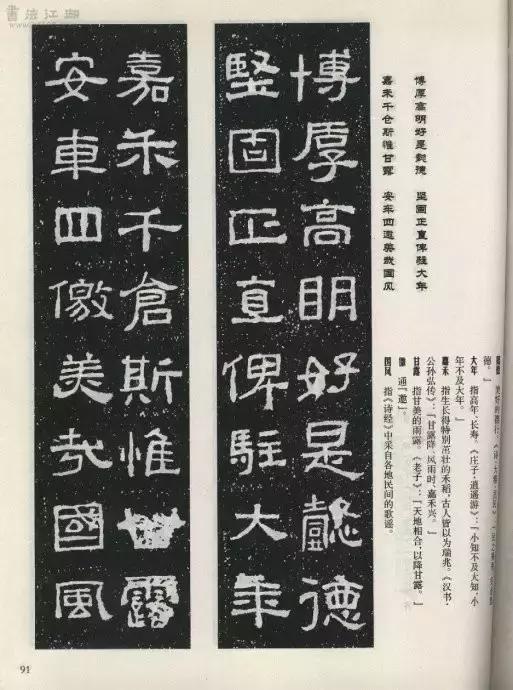 書法江湖
博厚高明好是懿德
堅固正直俾駐大年
嘉禾千倉斯惟甘露
安車四徼美哉國風
博厚高明好是懿德 坚固正直俾驻大年
嘉禾千仓斯惟甘露 安车四邀美哉国风
德。」
大年 指高年、长寿。《庄子·逍遥游》:「小知不及大知,小
年不及大年。」
嘉禾 指生长得特别茁壮的禾稻,古人皆以为瑞兆。《汉书·
公孙弘传》:「甘露降,风雨时,嘉禾兴。」
甘露 指甘美的雨露。《老子》:「天地相合,以降甘露。」
徼 通「邀」。
国风 指《诗经》中采自各地民间的歌谣。
91